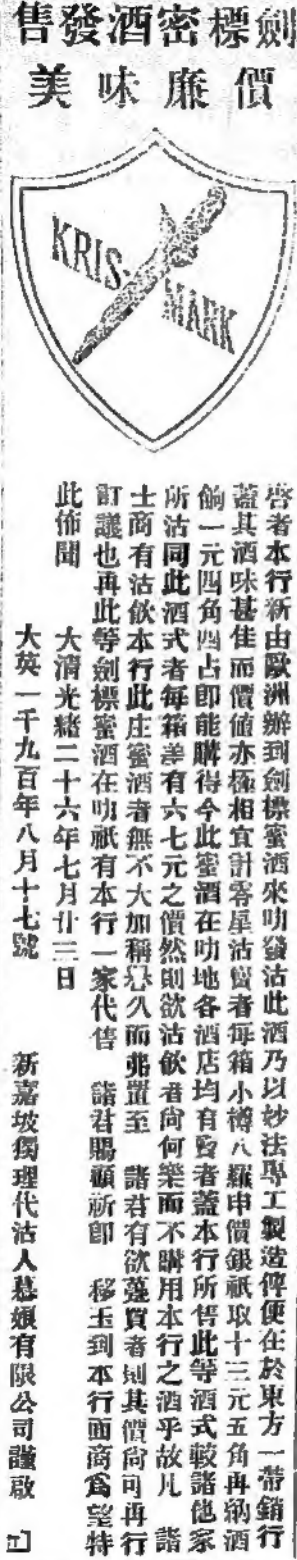 劍標密酒發售
價廉味美
KRIS-MARK
啓者本行新由歐洲辦到劍標蜜酒來叻發沽此酒乃以妙法專工製造俾便在於東方一帶銷行
蓋其酒味甚佳而價值亦極相宜計零星沽賣者每箱小樽八羅申價銀祇取十三元五角再鍋酒
餉一元四角四占即能購得今此蜜酒在叻地各酒店均有賣者蓋本行所售此等酒式較諸他家
所沽同此酒式者每箱差有六七元之價然則欲沽飲者尙何樂而不購用本行之酒乎故凡 諸
士商有沽飲本行此庄蜜酒者無不大加稱久而弗置至 諸君有欲躉買者則其價尙可再行
訂議也再此等劍標蜜酒在叻祇有本行一家代售 諸君賜顧祈即 移玉到本行面商爲望特
此佈聞
大清光緒二十六年七月廿三日
大英一千九百年八月十七號
新嘉坡獨理代沽人慕娘有限公司謹啟